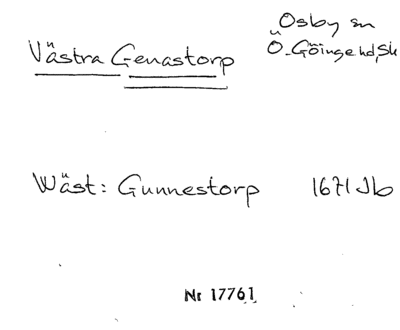 Västra Genastorp
Osby sn
Ö. Göinge hd, Sk
Wäst: Gunnestorp 1671 Jb
Nr 17761